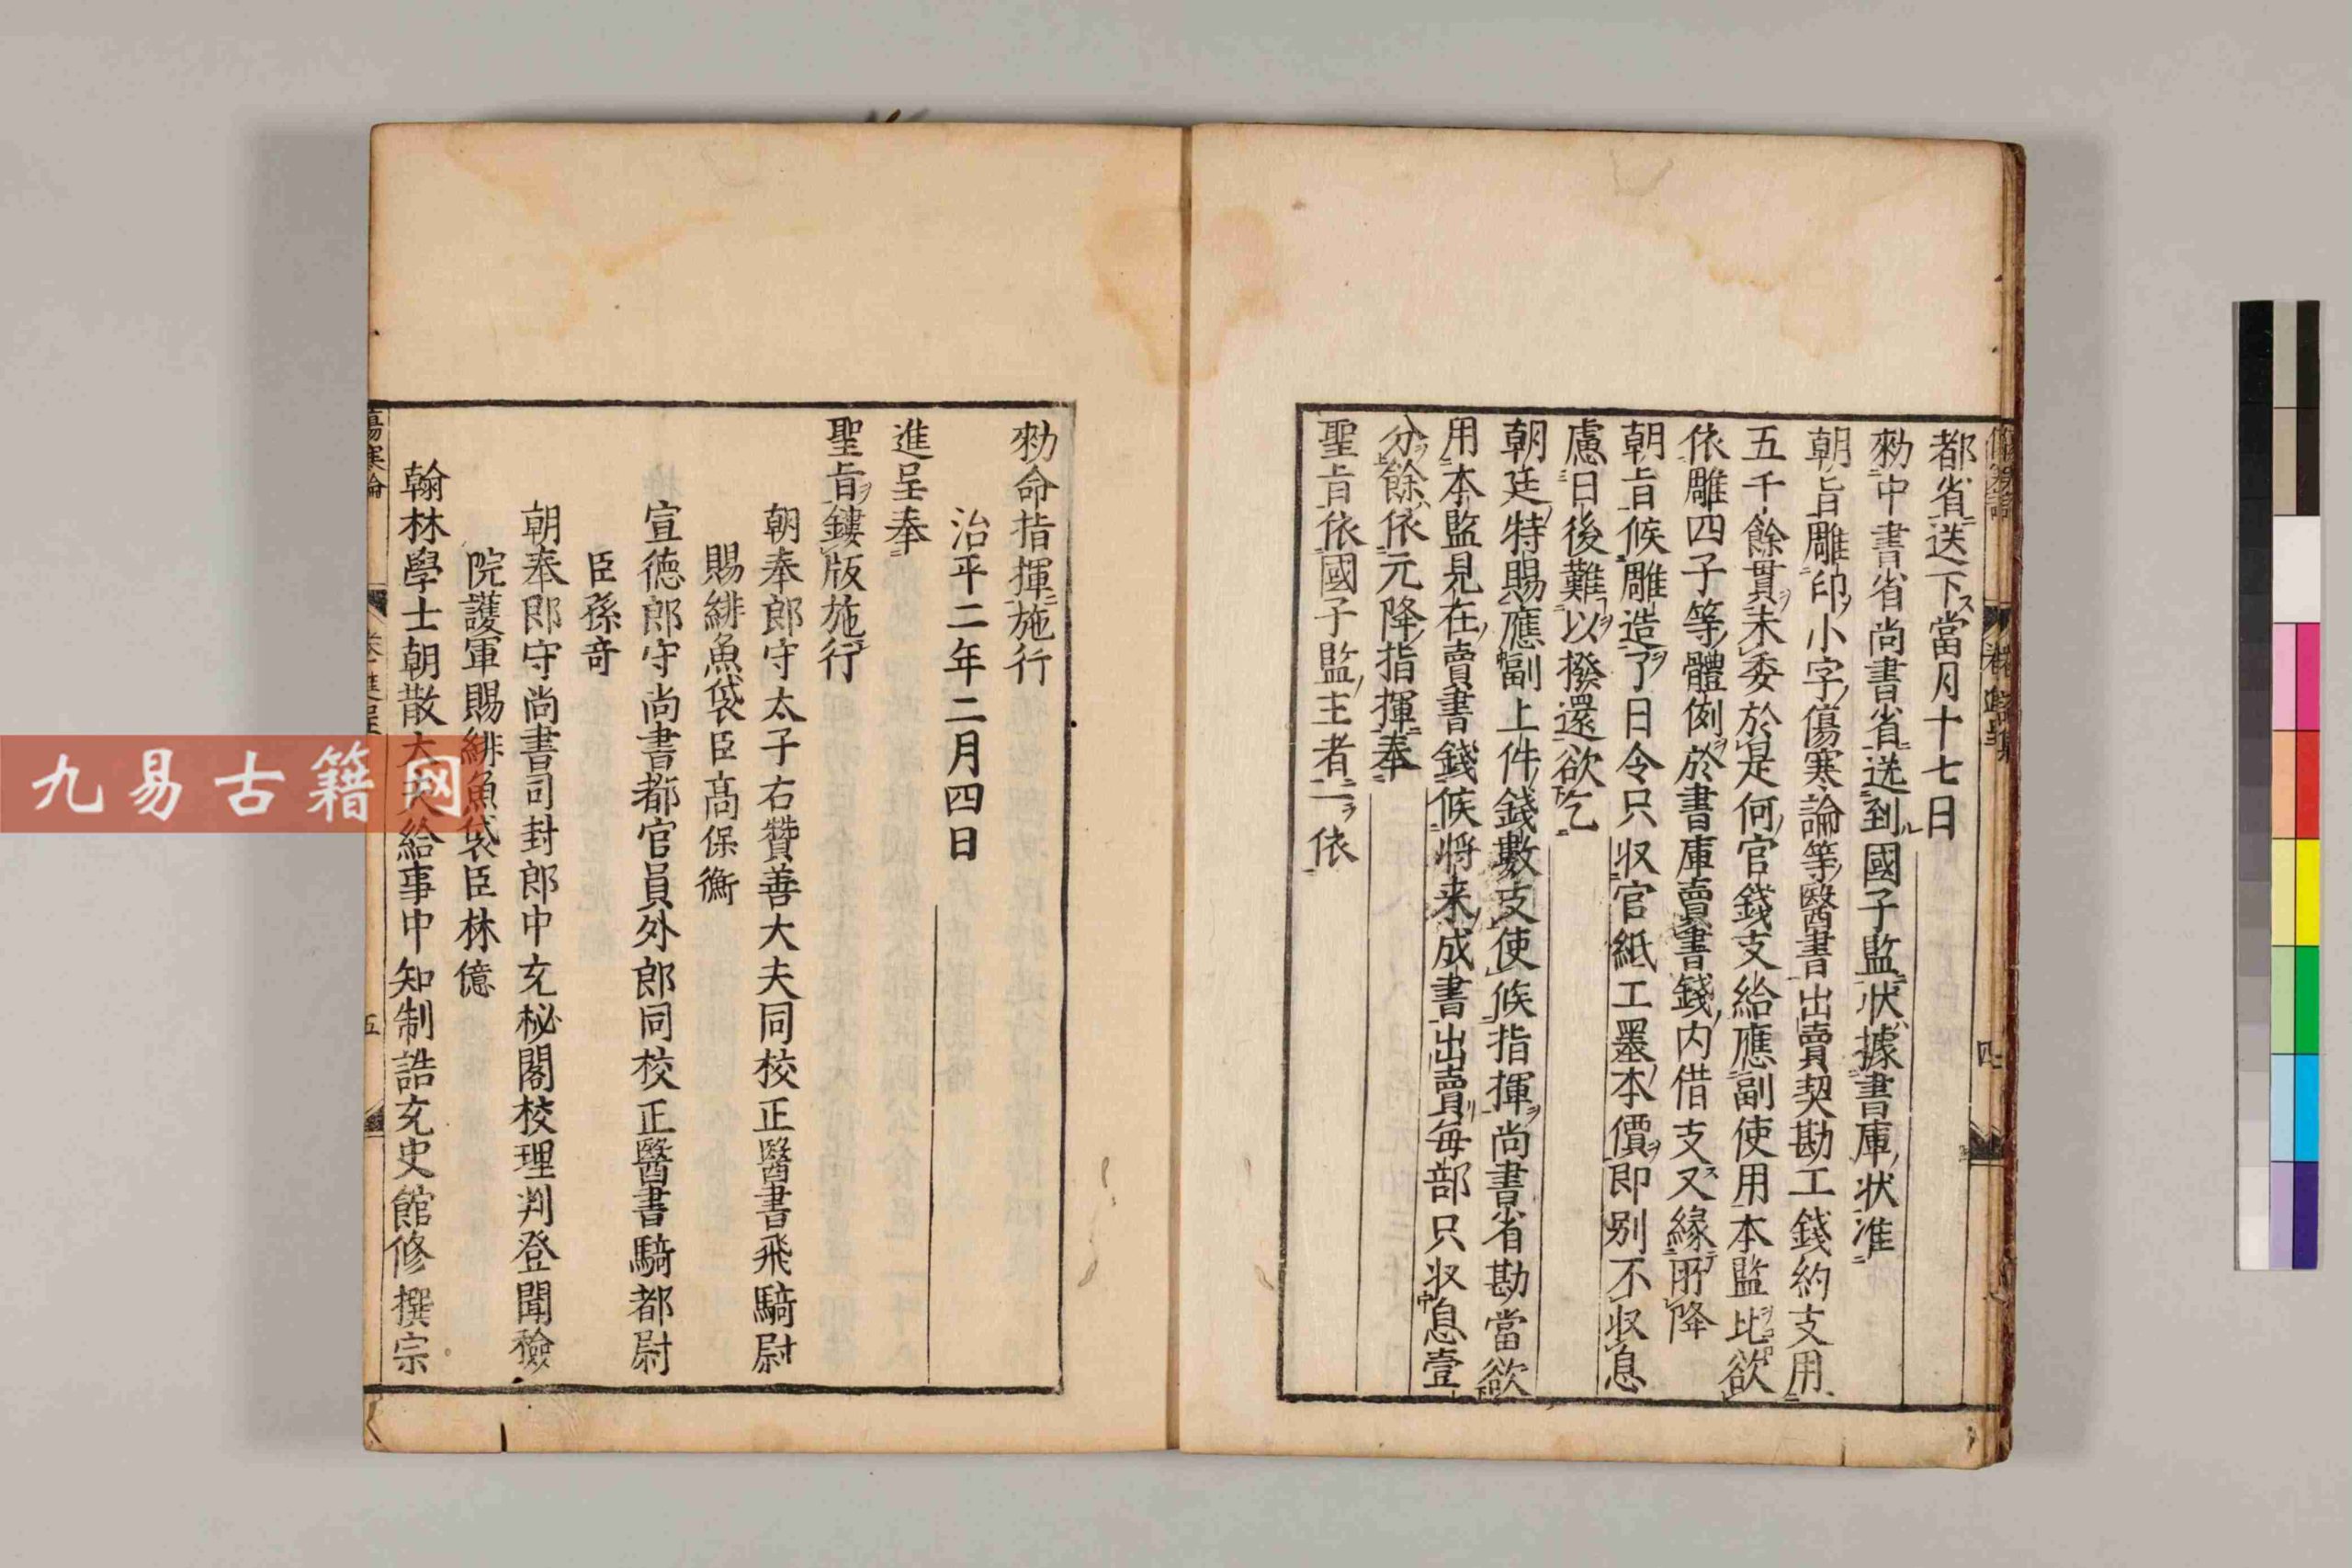 都省送下當月十七日
勑中書省尚書省送到國子監狀據書庫狀准
朝旨雕印小字傷寒論等醫書出賣契勘工錢約支用
五千餘貫未委於是何官錢支給應副使用本監比欲
依雕四子等體例於書庫賣書錢内借支又緣所降
朝旨候雕造了日令只収官紙工墨本價即別不収息
慮日後難以撥還欲乞
朝廷特賜應副上件錢數支使候指揮尚書省勘當欲
用本監見在賣書錢候将来成書出賣毎部只収息壹
分餘依元降指揮奉
聖旨依國子監主者一依
勑命指揮施行
治平二年二月四日
進呈奉
聖旨鏤版施行
朝奉郎守太子右贊善大夫同校正醫書飛騎尉
賜緋魚袋臣髙保衡
宣德郎守尚書都官員外郎同校正醫書騎都尉
臣孫奇
朝奉郎守尚書司封郎中充秘閣校理判登聞檢
院護軍賜緋魚袋臣林億
翰林學士朝散大夫給事中知制誥充史館修撰宗
傷寒論
五
四
九易古籍网